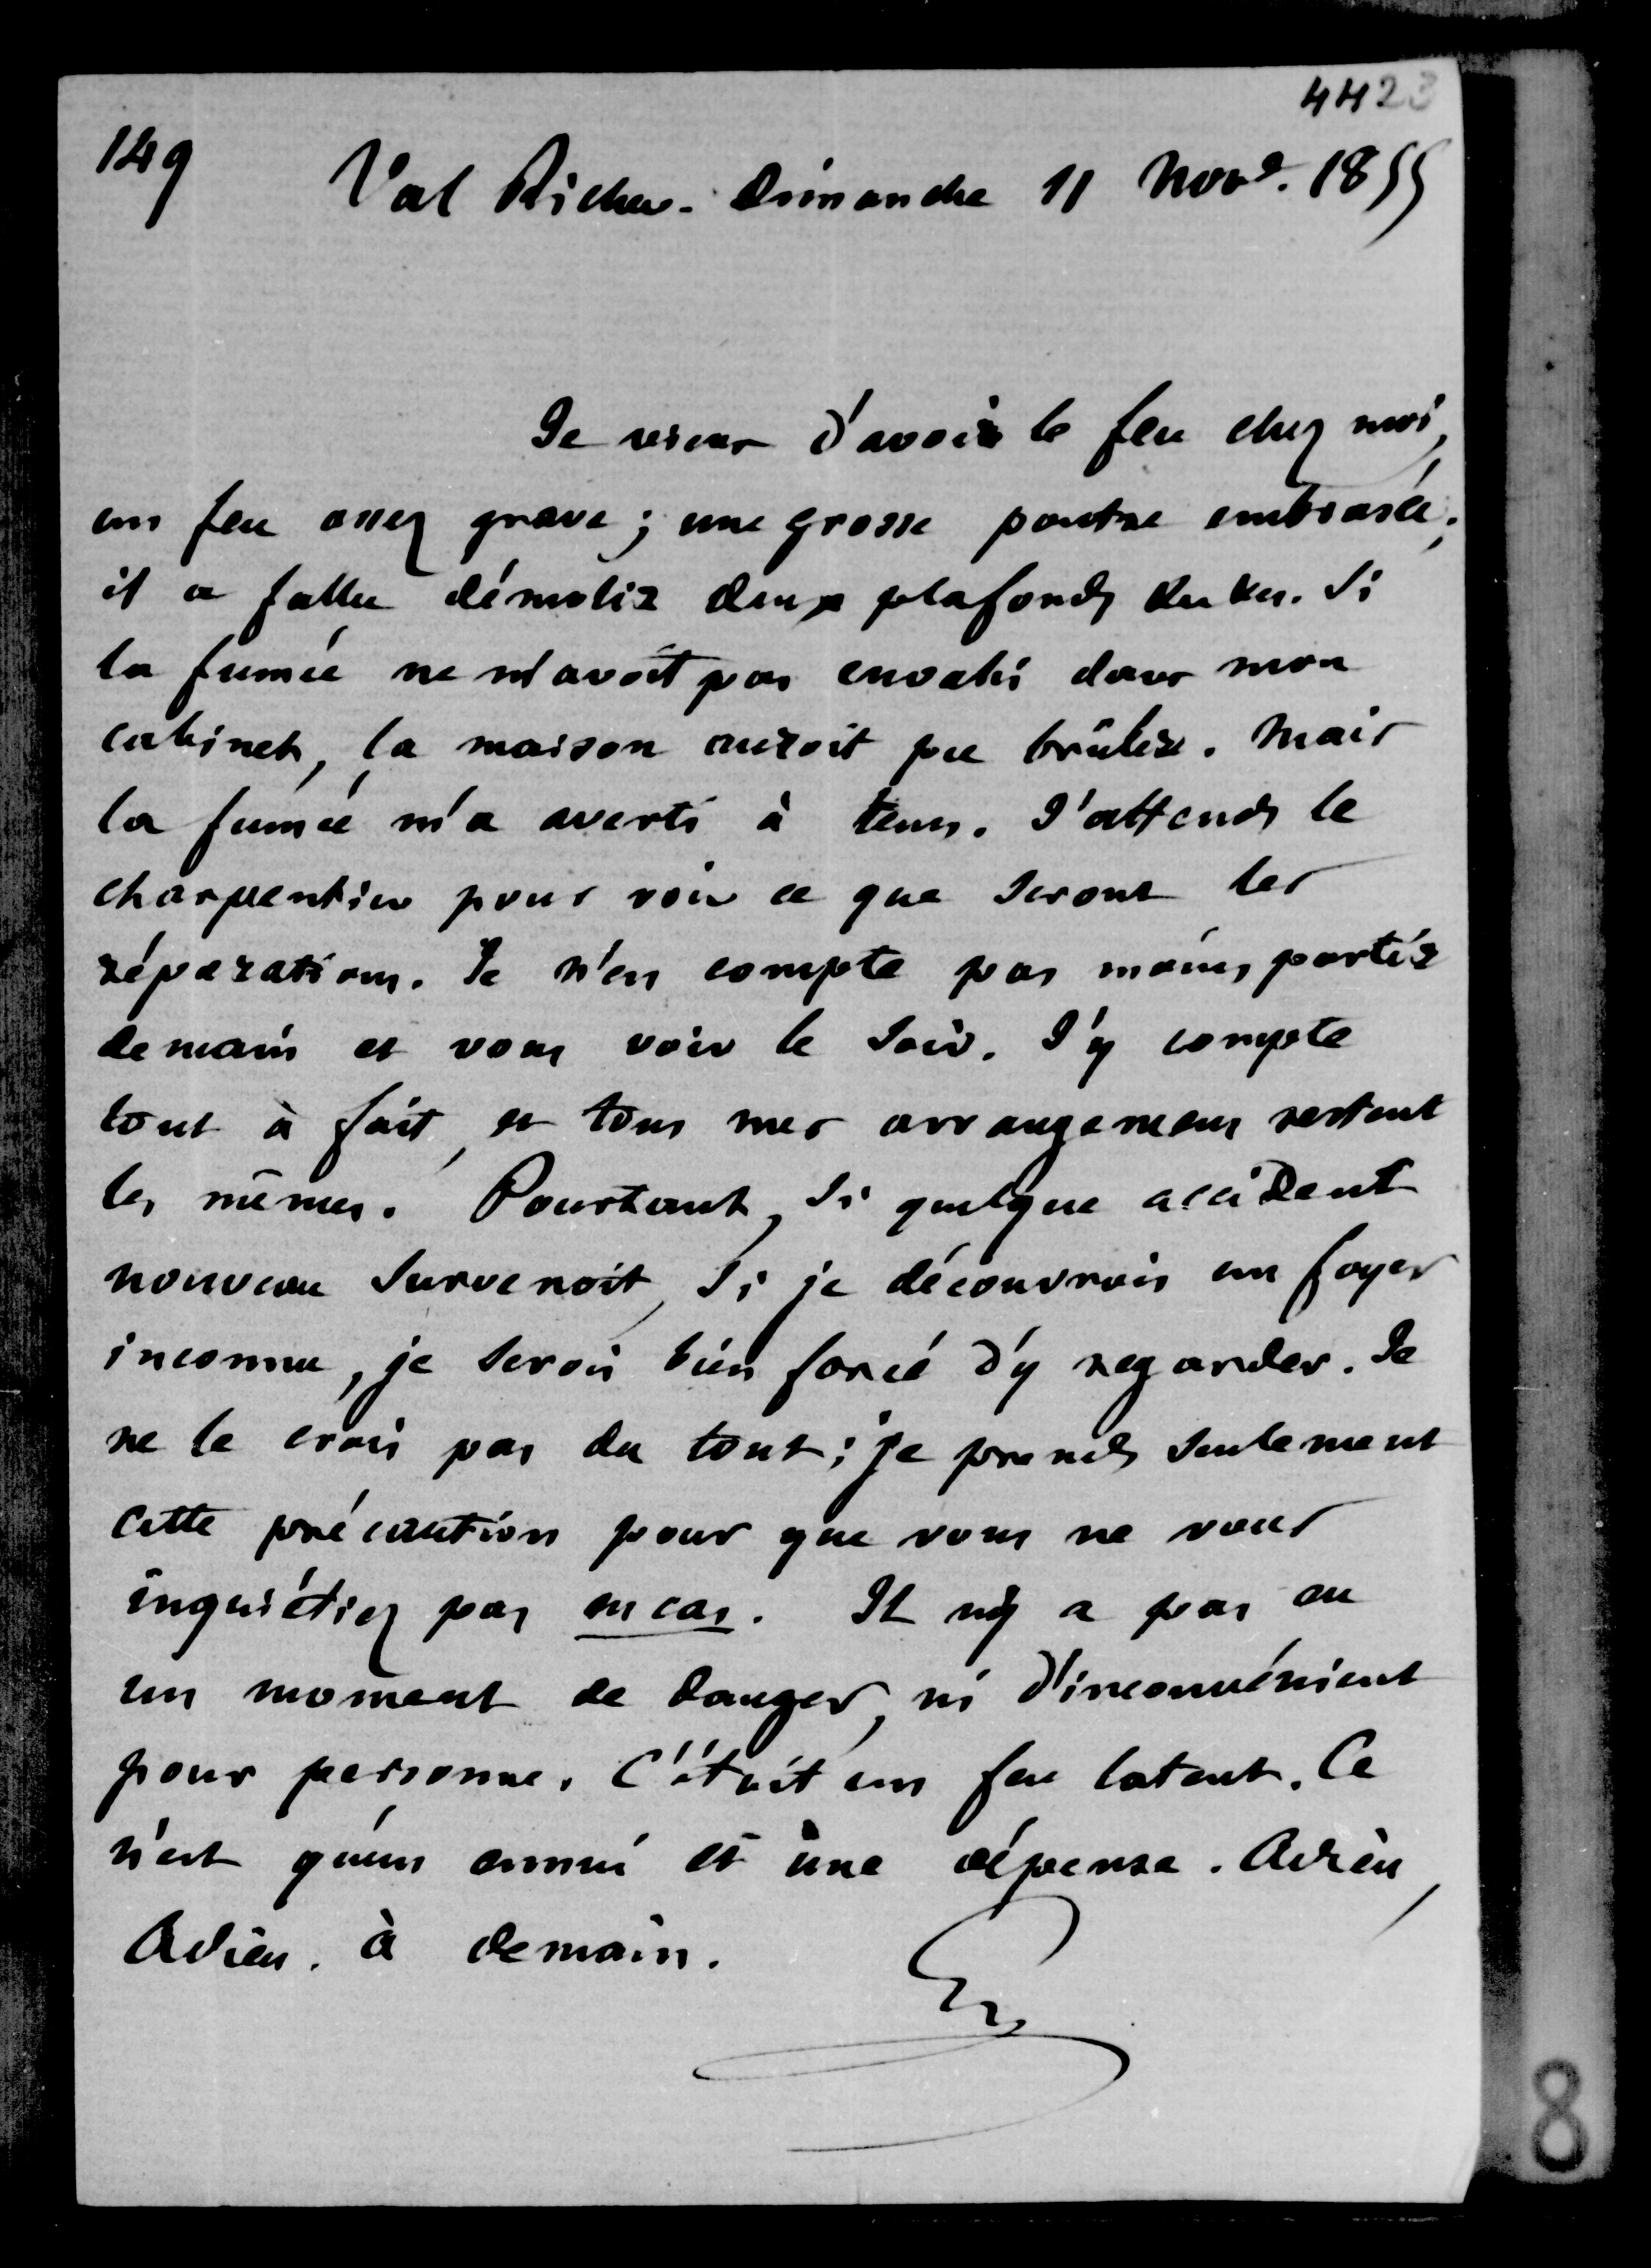 4423
149
Val Richer. Dimanche 11 Nov. 1855
Je viens d'avoir le feu chez moi,
un feu assez grave ; une grosse poutre embrasée,
il a fallu démolir deux plafonds. Si
la fumée ne m'avoit pas envahi dans mon
cabinet, la maison auroit pu brûler. Mais
la fumée m'a averti à tems. J'attends le
charpentier pour voir ce que seront les
réparations. Je n'en compte pas moins partir
demain et vous voir le soir. J'y compte
tout à fait, et tous mes arrangemens restent
les mêmes. Pourtant, si quelque accident
nouveau survenoit, si je découvrois un foyer
inconnu, je serois bien forcé d'y regarder. Je
ne le crois pas du tout ; je prends seulement
cette précaution pour que vous ne vous
inquiétiez pas en cas. Il n'y a pas eu
un moment de danger, ni d'inconvénient
pour personne. C'étoit un feu latent. Ce
n'est qu'un ennui et une dépense. Adieu,
Adieu. à demain.
8